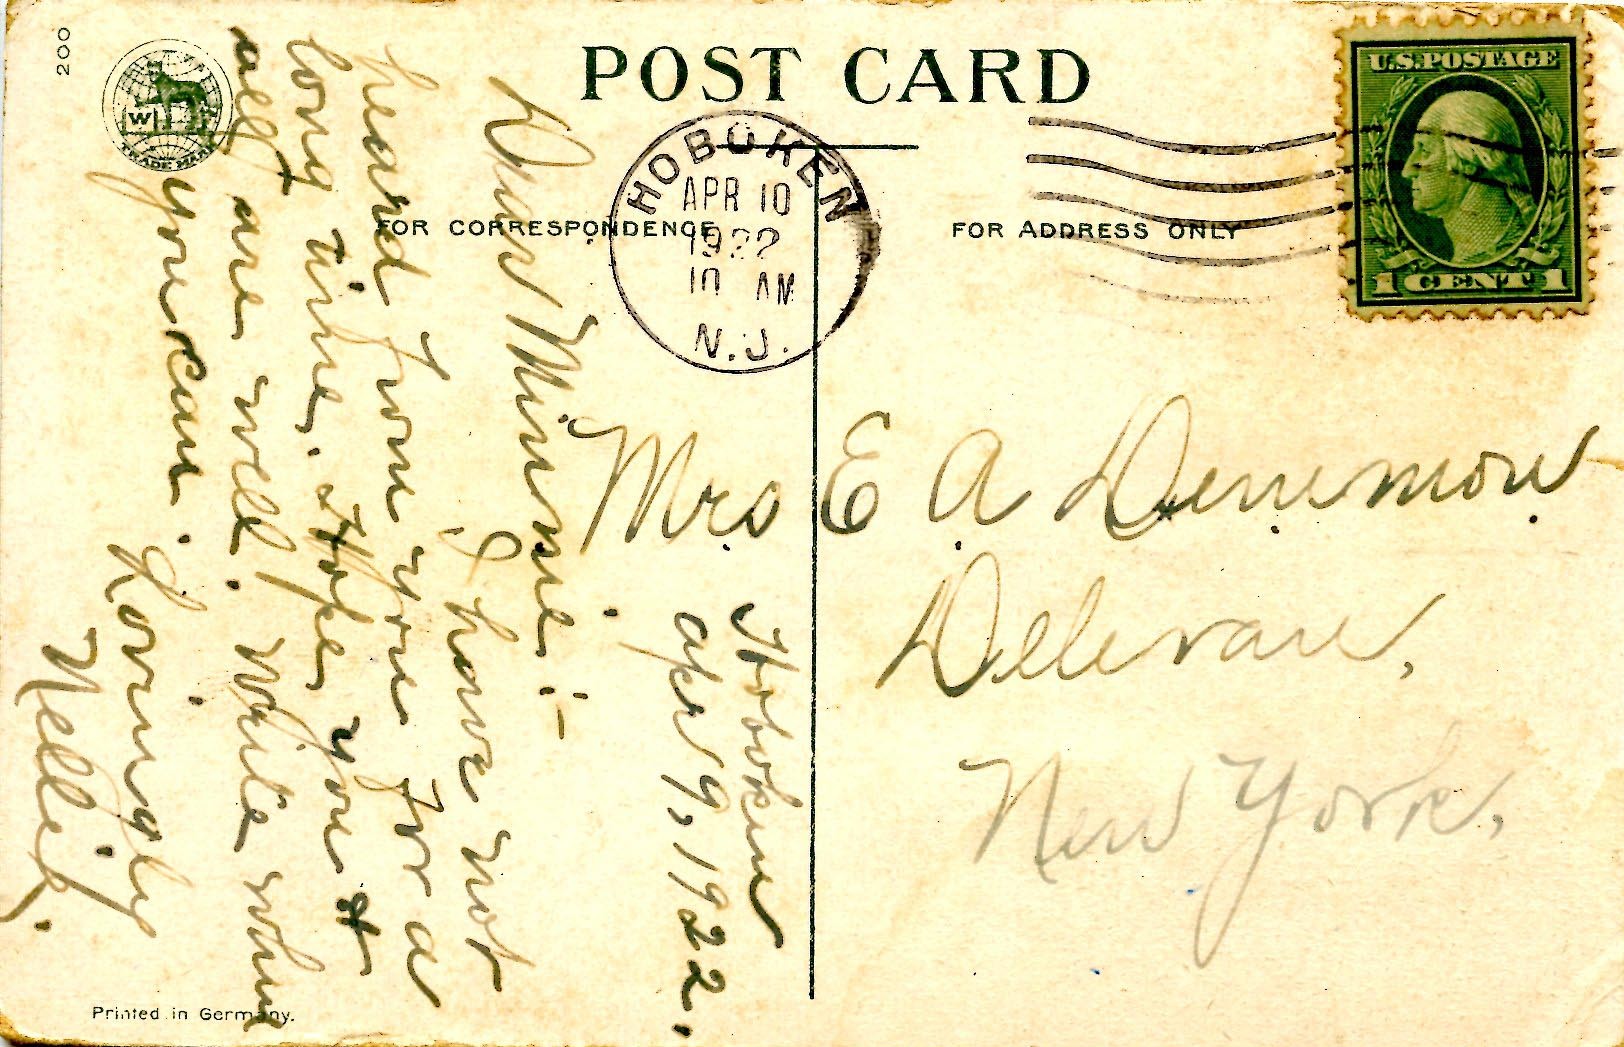 200
W
TRADE MARK
POST CARD
U.S. POSTAGE
1 CENT 1
HOBOKEN
APR 10
1922
10 AM
N.J.
FOR CORRESPONDENCE
FOR ADDRESS ONLY
Hoboken
Apr 9, 1922.
Dear Minnie:-
I have not
heard from you for a
long time. Hope you &
all are well. Write when
you can.
Lovingly
Nellie.
Mrs. E. A.
Delevan,
New York.
Printed in Germany.